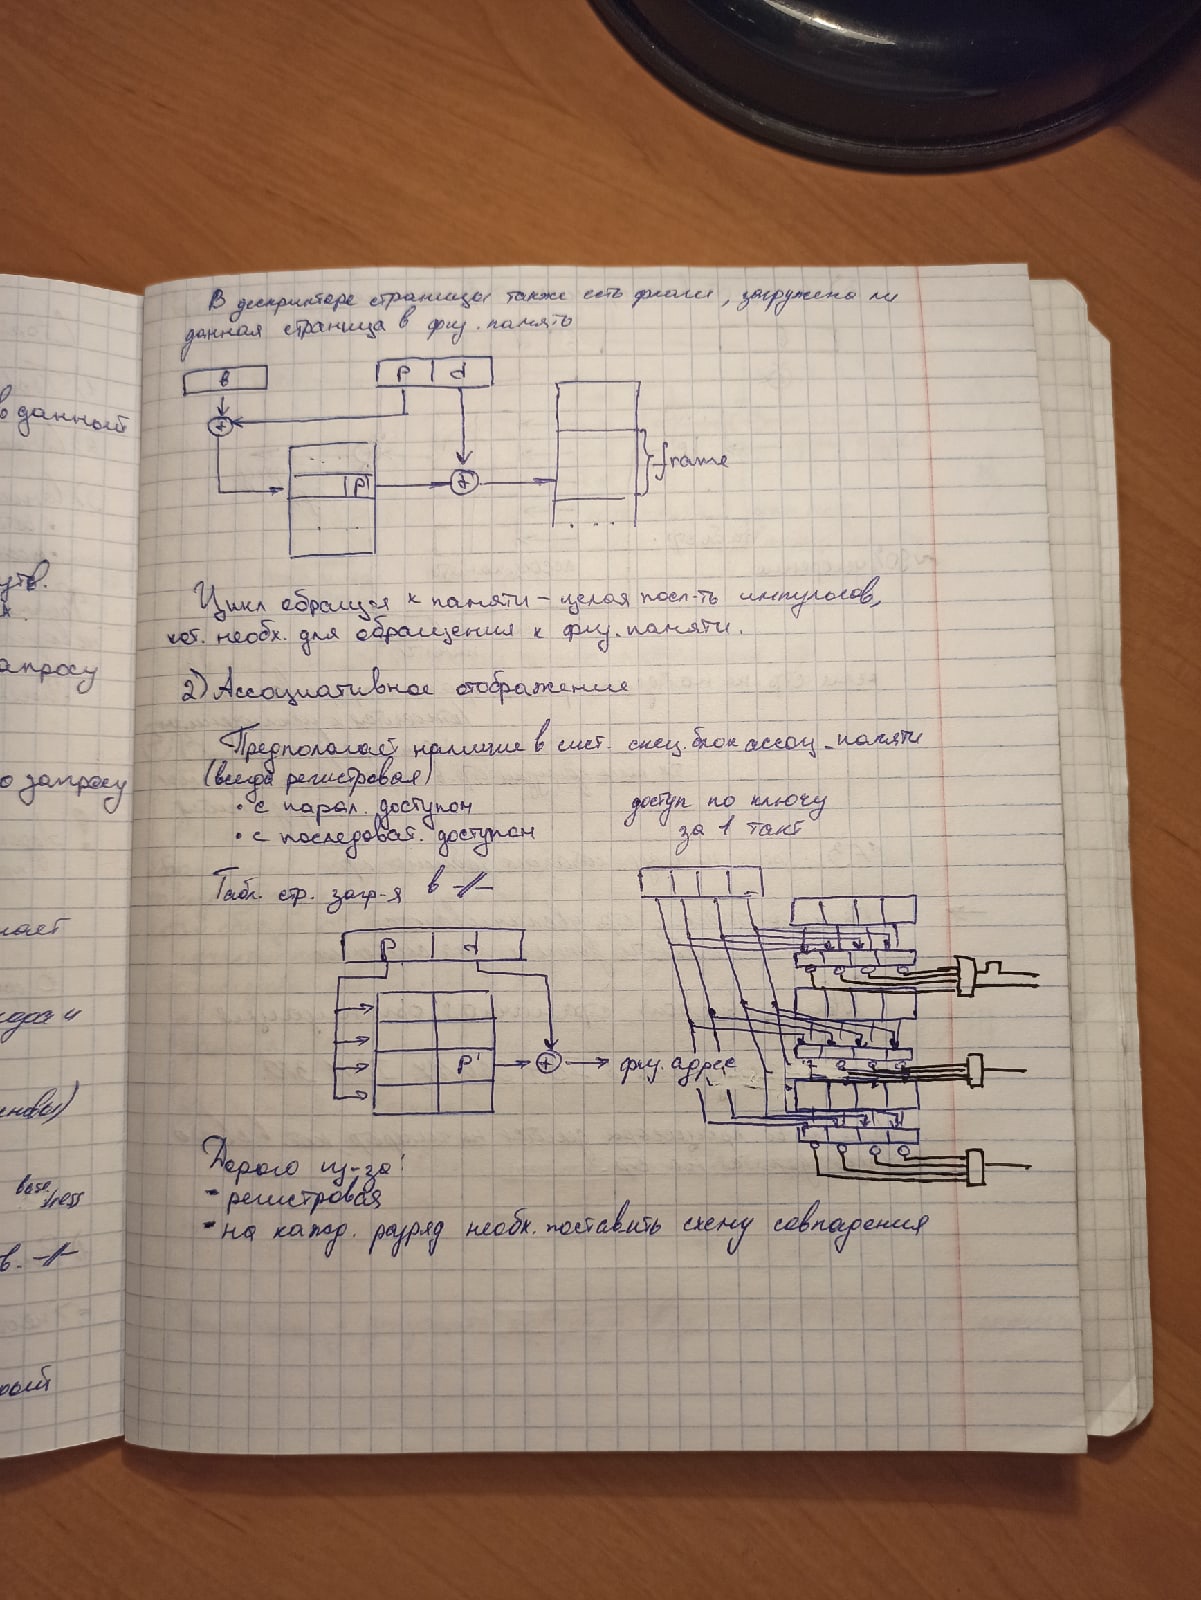 в данный
утв.
х.
апросу
о запросу
чает
base
в. —//—
В дескрипторе страницы также есть флаги, загружена ли
данная страница в физ. память
b
p d
+
p'
+
frame
. . .
Цикл обращ-я к памяти – целая посл-ть импульсов,
кот. необх. для обращения к физ. памяти.
2) Ассоциативное отображение
Предполагает наличие в сист. спец. блок ассоц. памяти
(всегда регистровая)
• с парал. доступом
• с последоват. доступом
доступ по ключу
за 1 такт
Табл. стр. загр-я в —//—
p d
p'
+
физ. адрес
Дорого из-за:
- регистровая
- на кажд. разряд необх. поставить схему совпадения